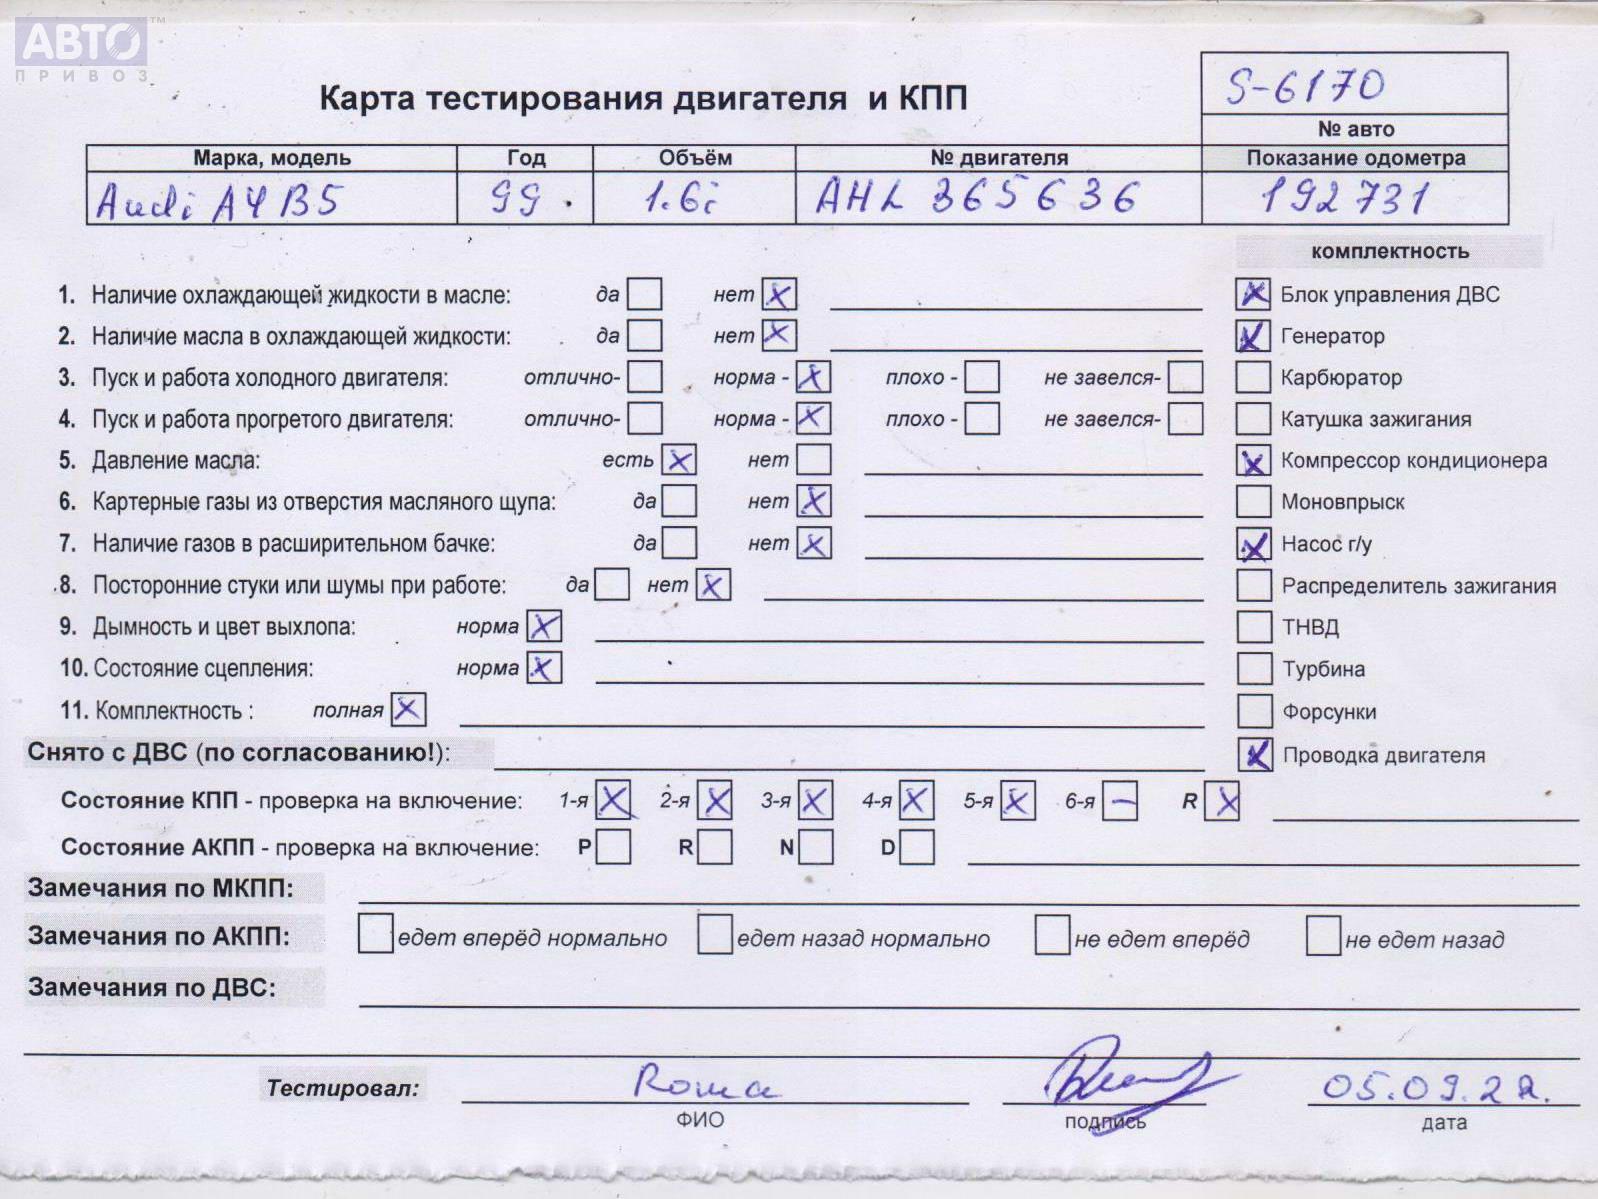 АВТО™
ПРИВОЗ
S-6170
Карта тестирования двигателя и КПП
№ авто
Марка, модель Год Объём № двигателя Показание одометра
Audi A4 B5 99. 1.6i AHL 365636 192731
комплектность
1. Наличие охлаждающей жидкости в масле: да нет X Блок управления ДВС X
2. Наличие масла в охлаждающей жидкости: да нет X Генератор X
3. Пуск и работа холодного двигателя: отлично- норма - X плохо - не завелся- Карбюратор
4. Пуск и работа прогретого двигателя: отлично- норма - X плохо - не завелся- Катушка зажигания
5. Давление масла: есть X нет X Компрессор кондиционера
6. Картерные газы из отверстия масляного щупа: да нет X Моновпрыск
7. Наличие газов в расширительном бачке: да нет X X Насос г/у
8. Посторонние стуки или шумы при работе: да нет X Распределитель зажигания
9. Дымность и цвет выхлопа: норма X ТНВД
10. Состояние сцепления: норма X Турбина
11. Комплектность : полная X Форсунки
Снято с ДВС (по согласованию!): X Проводка двигателя
Состояние КПП - проверка на включение: 1-я X 2-я X 3-я X 4-я X 5-я X 6-я – R X
Состояние АКПП - проверка на включение: P R N D
Замечания по МКПП:
Замечания по АКПП: едет вперёд нормально едет назад нормально не едет вперёд не едет назад
Замечания по ДВС:
Тестировал: Roma 05.09.22.
ФИО подпись дата